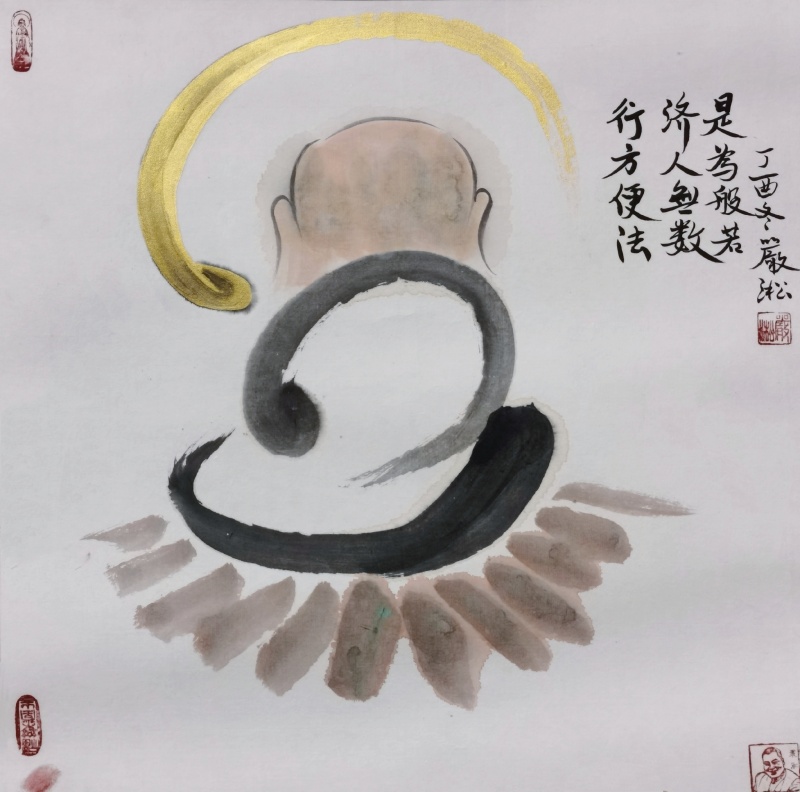 行方便法
济人無数
是為般若
丁酉冬嚴淞